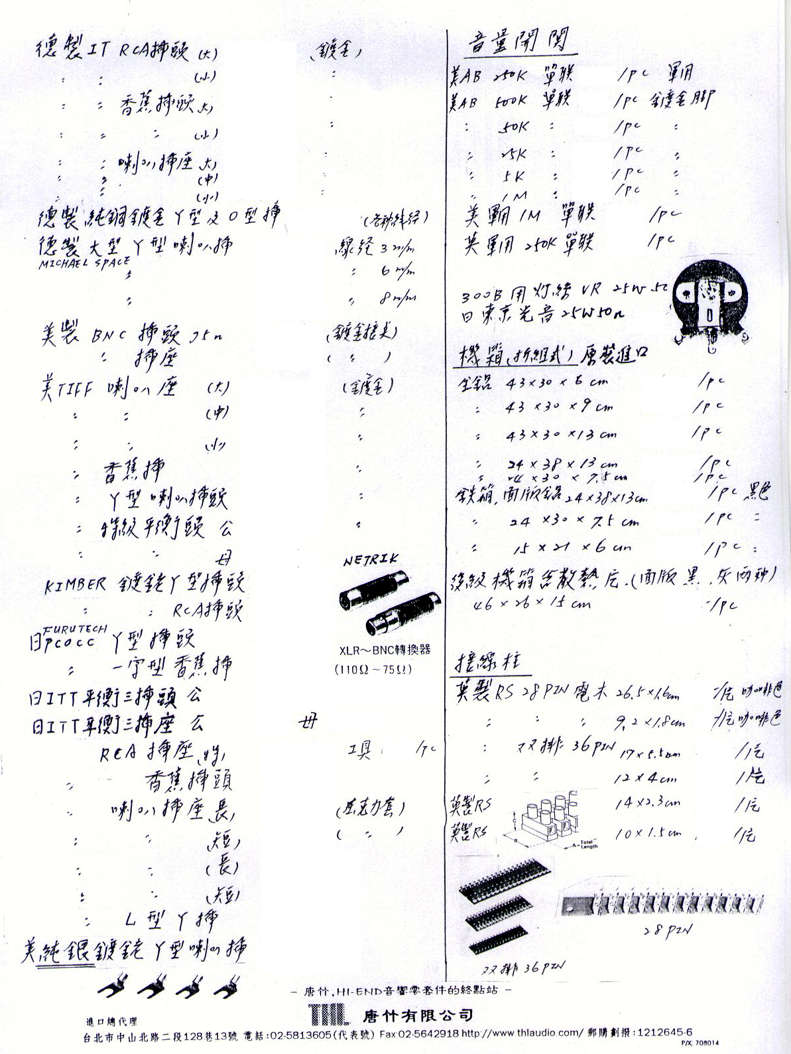 德製 IT RCA插頭 (大) (鍍金)
〃 〃 (小) 〃
〃 〃 香蕉插頭 (大) 〃
〃 〃 〃 (小) 〃
〃 〃 喇叭插座 (大) 〃
〃 〃 (中) 〃
〃 〃 (小) 〃
德製 純銅鍍金 Y型及O型插 (各種線径)
德製 大型 Y型喇叭插 線径 3 m/m
MICHAEL SPACE
〃 〃 6 m/m
〃 〃 8 m/m
美製 BNC 插頭 75Ω (鍍金接头)
〃 插座 (〃)
美TIFF 喇叭座 (大) (鍍金)
〃 〃 (中) 〃
〃 〃 (小) 〃
〃 香蕉插 〃
〃 Y型喇叭插頭 〃
〃 特級平衡頭 公 〃
〃 〃 母
KIMBER 鍍銠Y型插頭
〃 〃 RCA插頭
日FURUTECH PCOCC Y型插頭
〃 一字型香蕉插
日ITT平衡三插頭 公
日ITT平衡三插座 公 母
RCA 插座 工具 /pc
〃 香蕉插頭
〃 喇叭插座(長) (压克力套)
〃 〃 (短) (〃)
〃 〃 (長)
〃 〃 (短)
〃 L型Y插
美純銀鍍銠Y型喇叭插
NETRIK
XLR～BNC轉換器
(110Ω～75Ω)
音量開関
美AB 250K 單联 /pc 軍用
美AB 500K 單联 /pc 鍍金脚
〃 50K 〃 /pc 〃
〃 25K 〃 /pc 〃
〃 5K 〃 /pc 〃
〃 1M 〃 /pc 〃
美軍用 1M 單联 /pc
英軍用 250K 單联 /pc
300B用灯絲VR 25W 5Ω
日東京光音25W50Ω
機箱(拆組式)原裝進口
全鋁 43×30×6 cm /pc
〃 43×30×9 cm /pc
〃 43×30×13 cm /pc
〃 24×38×13 cm /pc
〃 24×30×7.5 cm /pc
鉄箱,面版鋁 24×38×13cm /pc 黑色
〃 24×30×7.5 cm /pc 〃
〃 15×21×6 cm /pc 〃
後級機箱含散熱片.(面版黑.灰兩種)
46×26×15 cm /pc
接線柱
英製RS 28PIN 電木 26.5×1.6cm /片 咖啡色
〃 〃 〃 9.2×1.8cm /片 咖啡色
〃 双排 36PIN 17×5.5cm /片
〃 〃 12×4cm /片
英製RS 14×2.3cm /片
英製RS 10×1.5cm /片
A - Total Length
28 PIN
双排36PIN
- 唐竹,HI-END音響零套件的終點站 -
THL 唐竹有限公司
進口總代理
台北市中山北路二段128巷13號 電話:02-5813605(代表號) Fax 02-5642918 http://www.thlaudio.com/ 郵購劃撥:1212645-6
P/X 708014